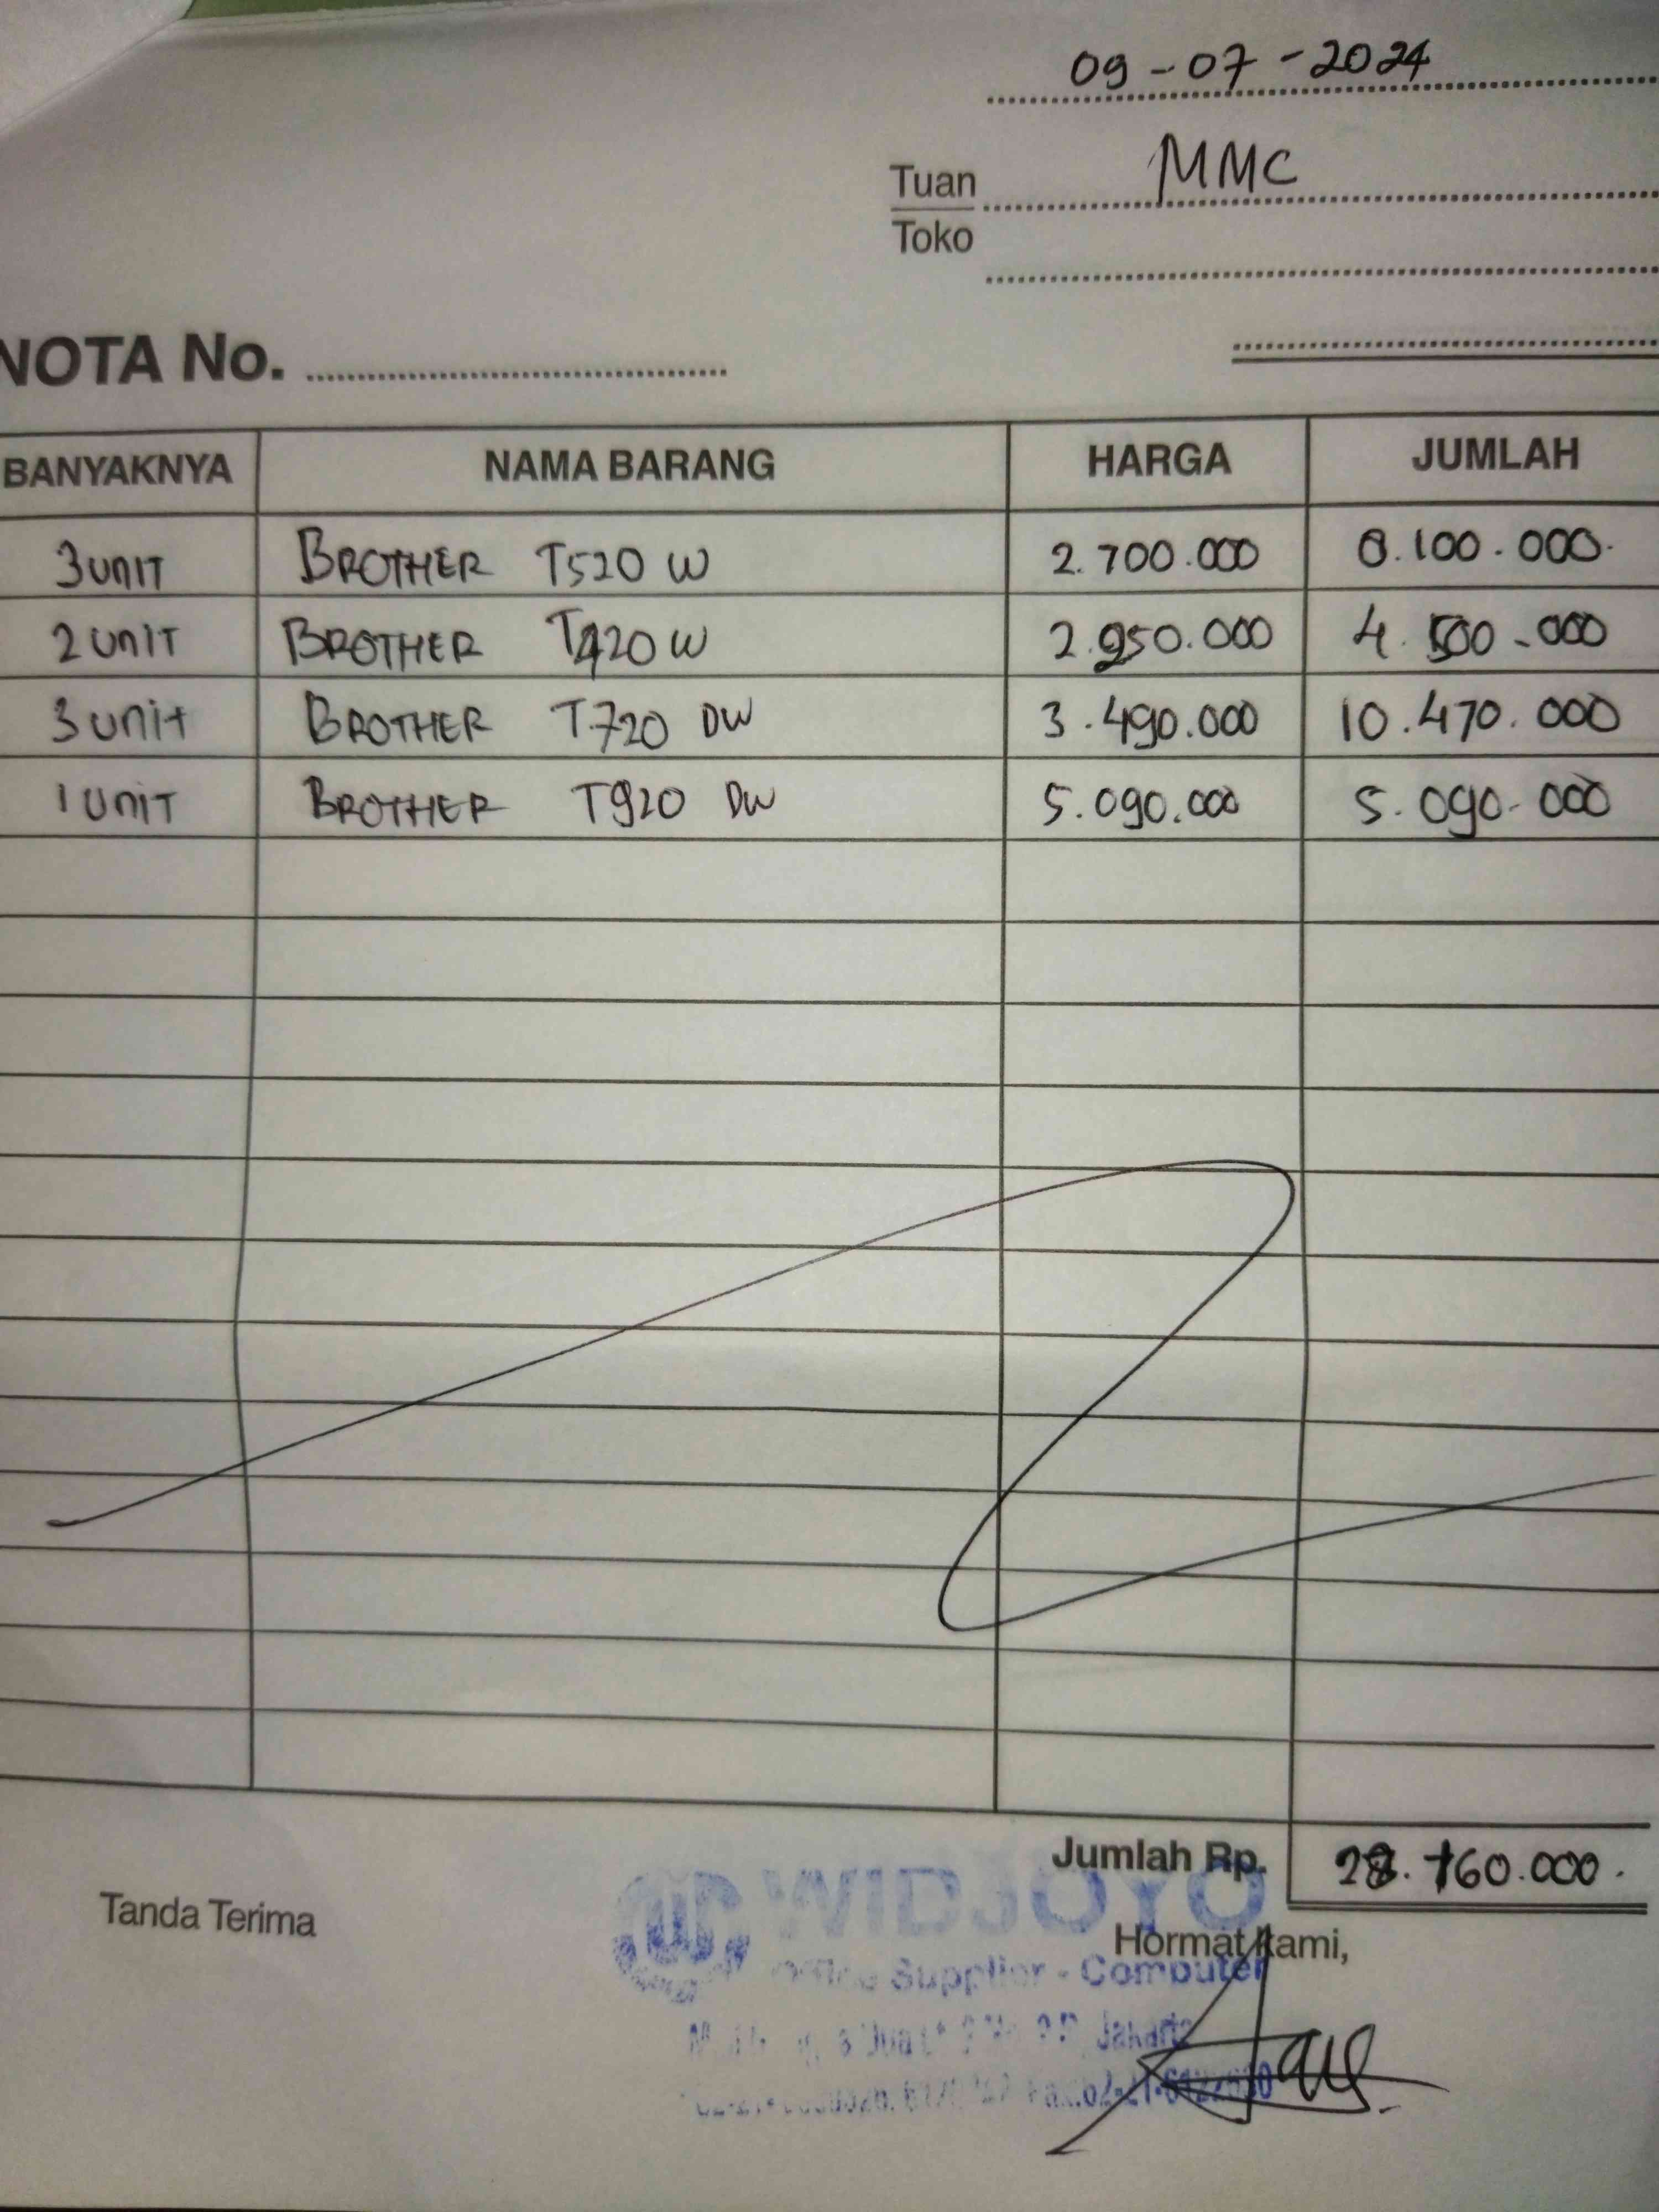 09-07-2024
Tuan MMC
Toko
NOTA No.
BANYAKNYA NAMA BARANG HARGA JUMLAH
3 UNIT BROTHER T520 W 2.700.000 8.100.000.
2 UNIT BROTHER T420 W 2.250.000 4.500-000
3 UNIT BROTHER T720 DW 3.490.000 10.470.000
1 UNIT BROTHER T920 DW 5.090.000 5.090-000
Jumlah Rp. 28.160.000.
Tanda Terima
WIDJOYO
Hormat Kami,
Office Supplier - Computer
Jakarta